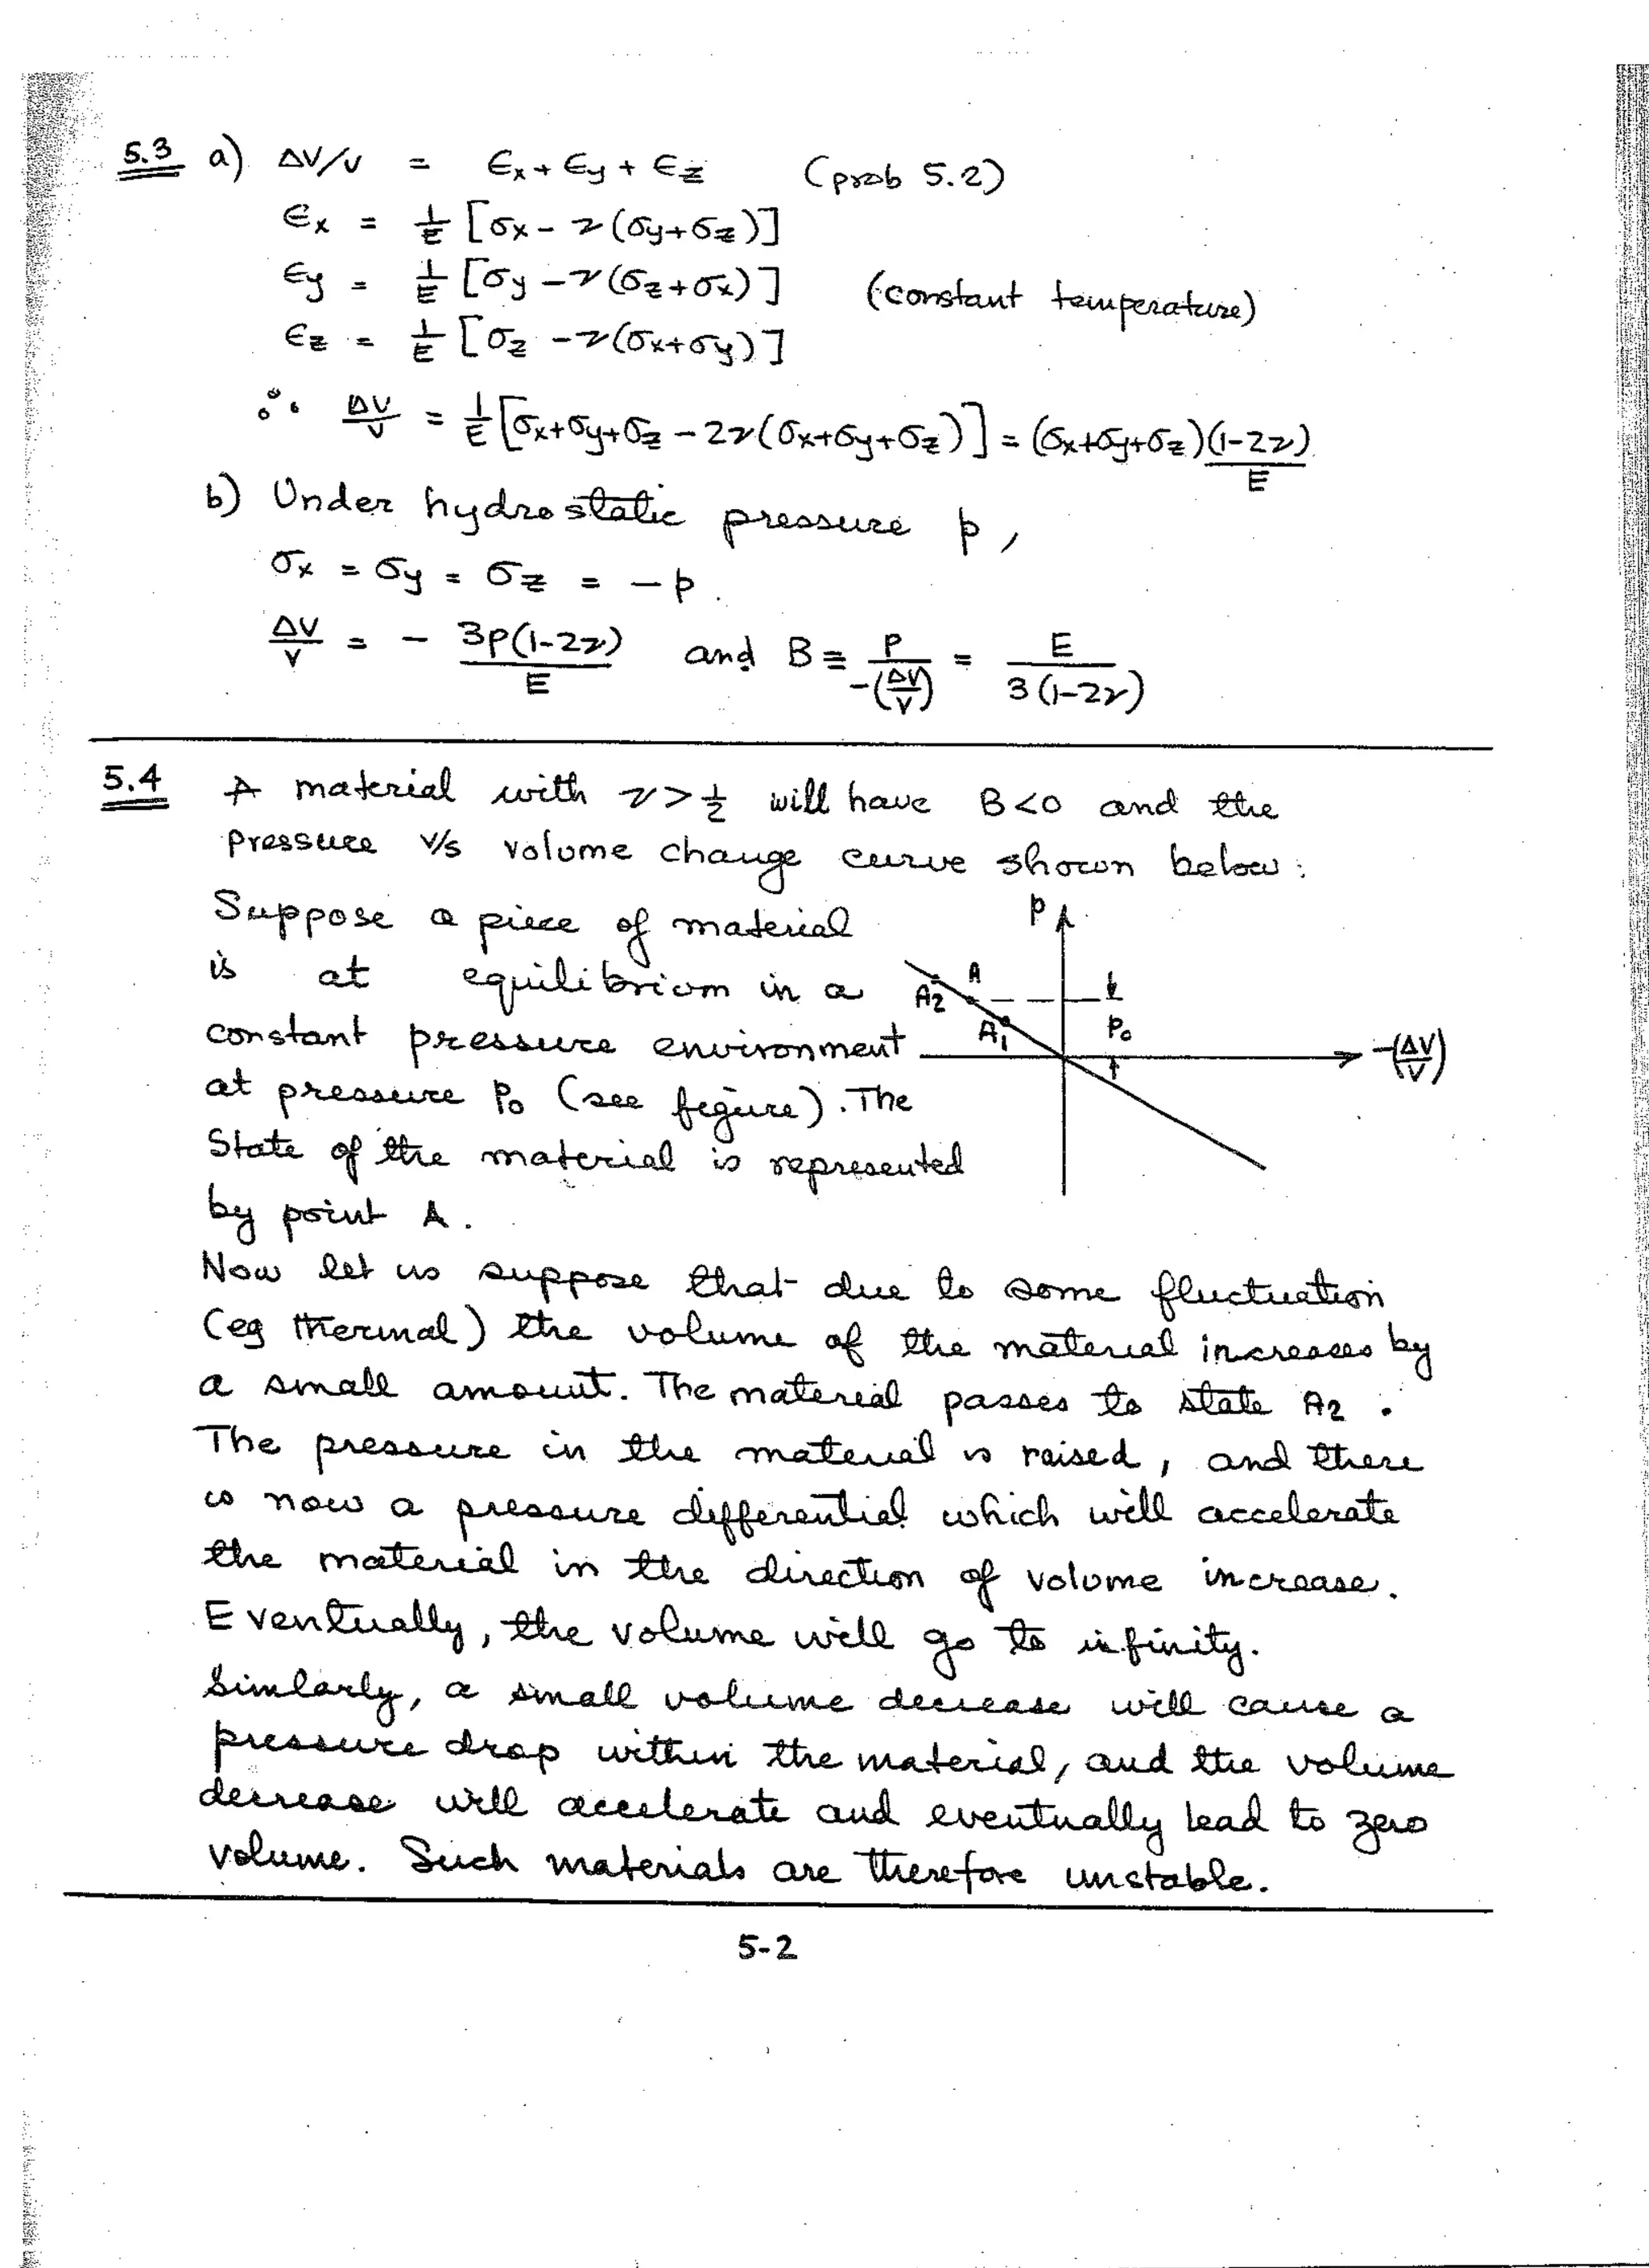 5.3 a) ΔV/V = ϵx + ϵy + ϵz (prob 5.2)
ϵx = 1/E [σx - ν(σy+σz)]
ϵy = 1/E [σy - ν(σz+σx)] (constant temperature)
ϵz = 1/E [σz - ν(σx+σy)]
∴ ΔV/V = 1/E [σx+σy+σz - 2ν(σx+σy+σz)] = (σx+σy+σz)(1-2ν)/E
b) Under hydrostatic pressure p,
σx = σy = σz = -p.
ΔV/V = - 3p(1-2ν)/E and B ≡ p/-(ΔV/V) = E/3(1-2ν)
5.4 A material with ν > 1/2 will have B<0 and the
pressure v/s volume change curve shown below:
Suppose a piece of material
is at equilibrium in a
constant pressure environment
at pressure P0 (see figure). The
State of the material is represented
by point A.
p
A
A2
A1
P0
-(ΔV/V)
Now let us suppose that due to some fluctuation
(eg thermal) the volume of the material increases by
a small amount. The material passes to state A2.
The pressure in the material is raised, and there
is now a pressure differential which will accelerate
the material in the direction of volume increase.
Eventually, the volume will go to infinity.
Simlarly, a small volume decrease will cause a
pressure drop within the material, and the volume
decrease will accelerate and eventually lead to zero
volume. Such materials are therefore unstable.
5-2